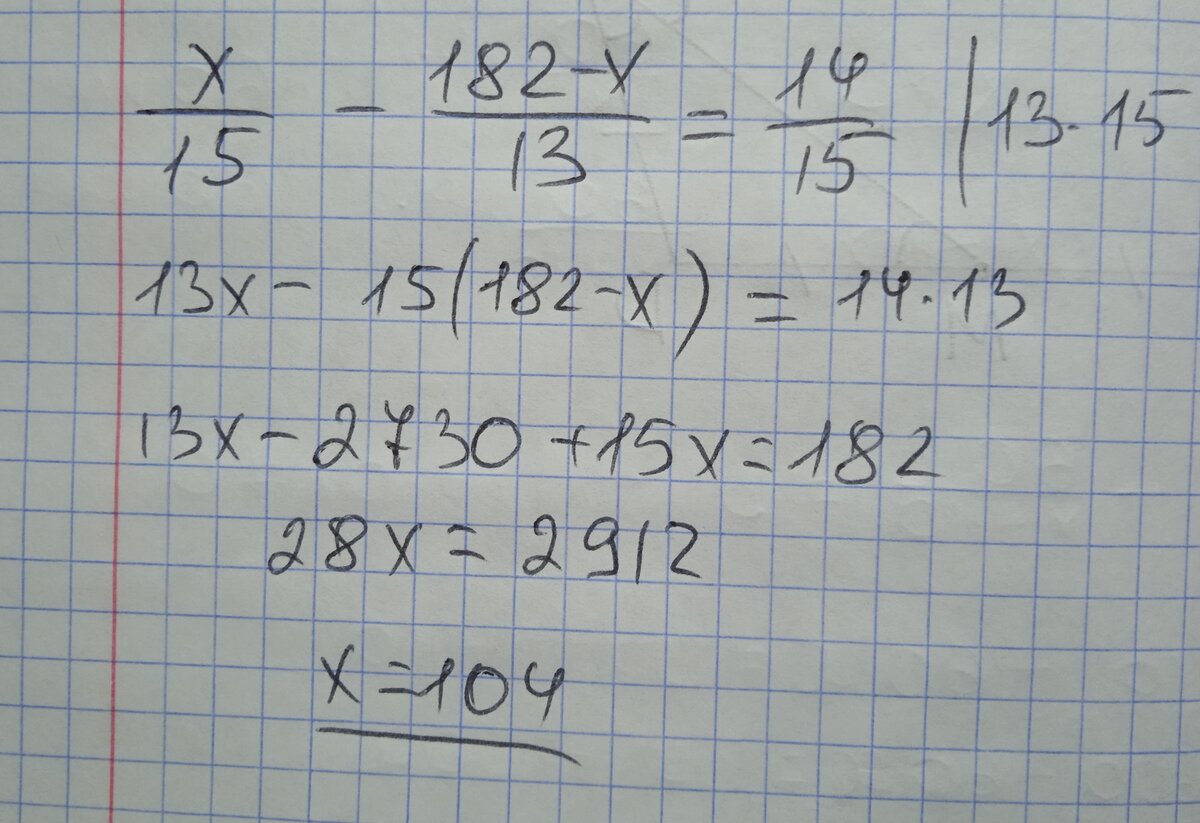 x/15 - (182-x)/13 = 14/15 | 13·15
13x - 15(182-x) = 14·13
13x - 2730 + 15x = 182
28x = 2912
x = 104